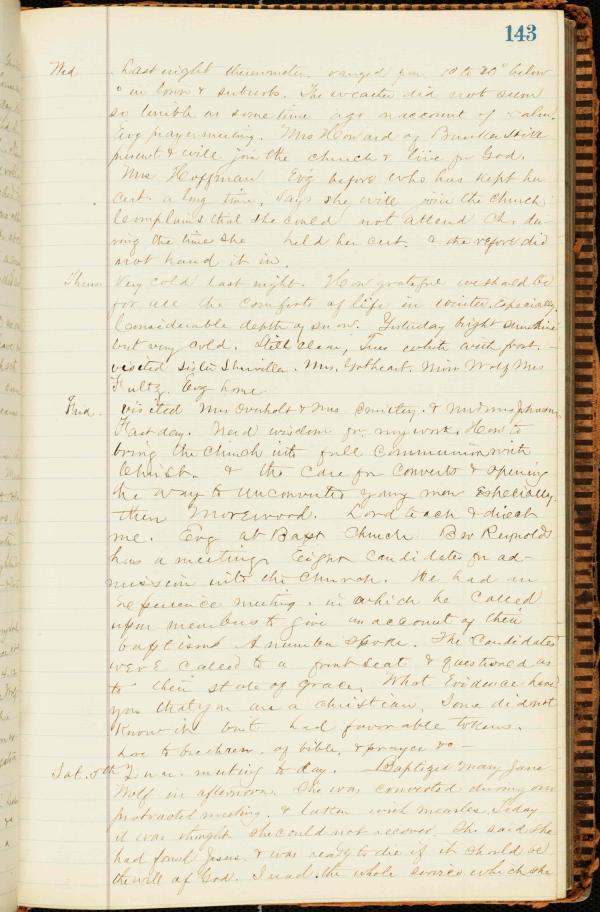 143
Wed Last night thermometer ranged from 10 to 20° below
° in town & suburbs. The weather did not seem
so terrible as some time ago on account of calm.
Evg prayermeeting. Mrs Howard of Bunker Hill
present & will join the church & live for God.
Mrs Hoffman Evg before who has kept her
cert. a long time, says she will join the church
Complains that she could not attend Ch. du-
ring the time she held her cert. & therefore did
not hand it in.
Thurs Very cold last night. How grateful we should be
for all the comforts of life in winter. Especially.
Considerable depth of snow. Yesterday bright sunshine
but very cold. Still clear, Trees white with frost.
visited Sister Mrs. Gotheart. Miss Wolf Mrs
Fultz. Evg home
Frid. visited Mrs Overholt & Mrs & Mrs Johnson
Fast day. Need wisdom for my work. How to
bring the church into full Communion with
Christ. & the care for Converts & opening
the way to unconverted young men Especially
then Morewood. Lord teach & direct
me. Evg at Bapt Church Bro Reynolds
has a meeting. Eight candidates for ad-
mission into the Church. He had an
Experience meeting. in which he called
upon members to give an account of their
baptisms A number spoke. The Candidates
were called to a front seat & questioned as
to their state of grace. What Evidence have
you that you are a Christian. Some did not
know it but had favorable tokens.
love to brethren. of bible, & prayer &c -
Sat. 5th meeting to day. Baptized Mary Jane
Wolf in afternoon. She was converted during our
protracted meeting. & taken with measles. Today
it was thought she could not recover. She said she
had found Jesus & was ready to die if it should be
the will of God. I read the whole service which she